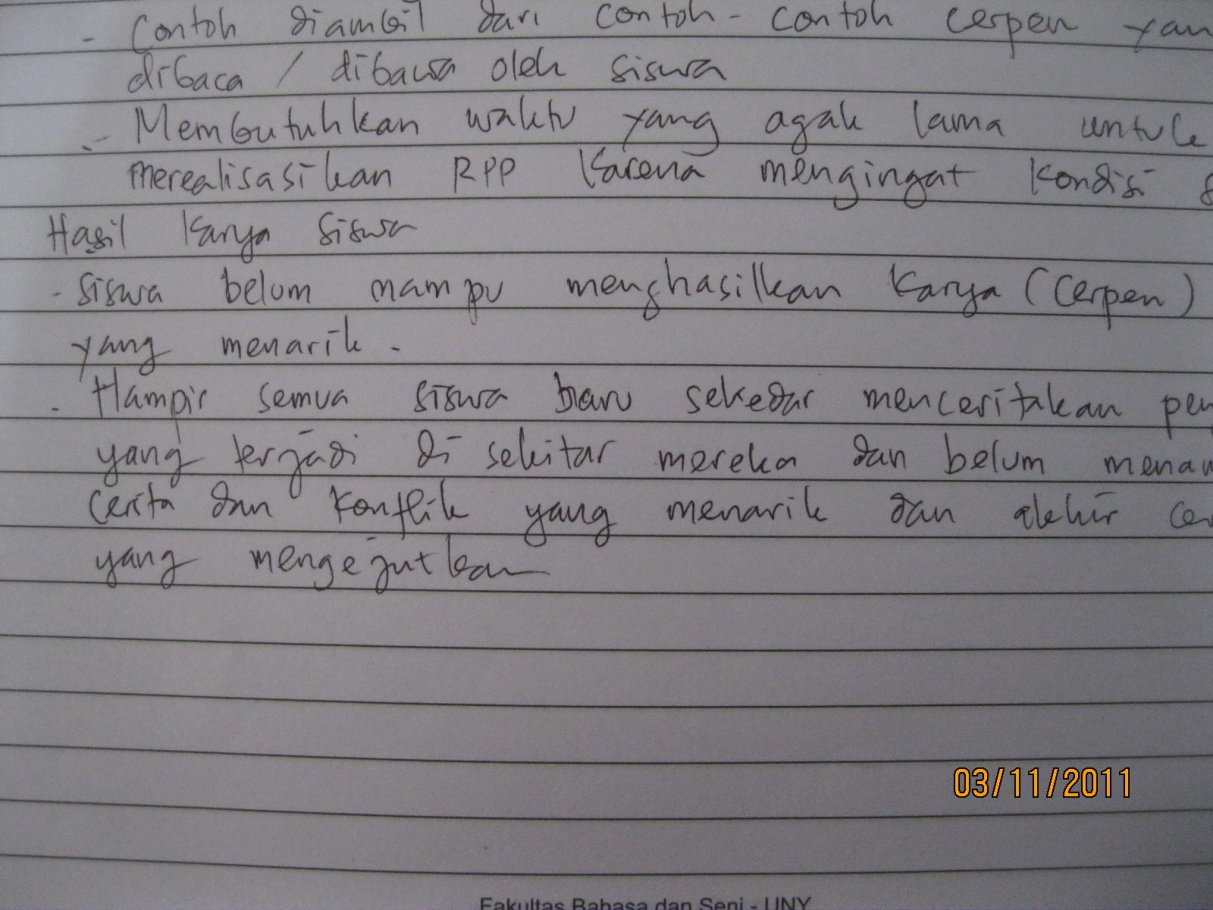 - Contoh diambil dari contoh-contoh cerpen yan
dibaca / dibawa oleh siswa
- Membutuhkan waktu yang agak lama untuk
merealisasikan RPP karena mengingat kondisi s
Hasil karya siswa
- Siswa belum mampu menghasilkan karya (cerpen)
yang menarik.
- Hampir semua siswa baru sekedar menceritakan pe
yang terjadi di sekitar mereka dan belum mena
cerita dan konflik yang menarik dan akhir ce
yang mengejutkan
03/11/2011
Fakultas Bahasa dan Seni - UNY